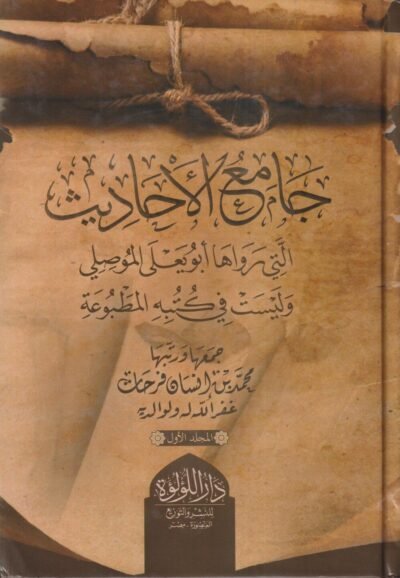 جَامِعُ الأَحَادِيثِ
الَّتِي رَوَاهَا أَبُو يَعْلَى المَوْصِلِي
وَلَيْسَتْ فِي كُتُبِهِ المَطْبُوعَةِ
جمعها ورتبها
محمد بن إنسان فرحات
غفر الله له ولوالديه
المجلد الأول
دار اللؤلؤة
للنشر والتوزيع
المنصورة - مصر